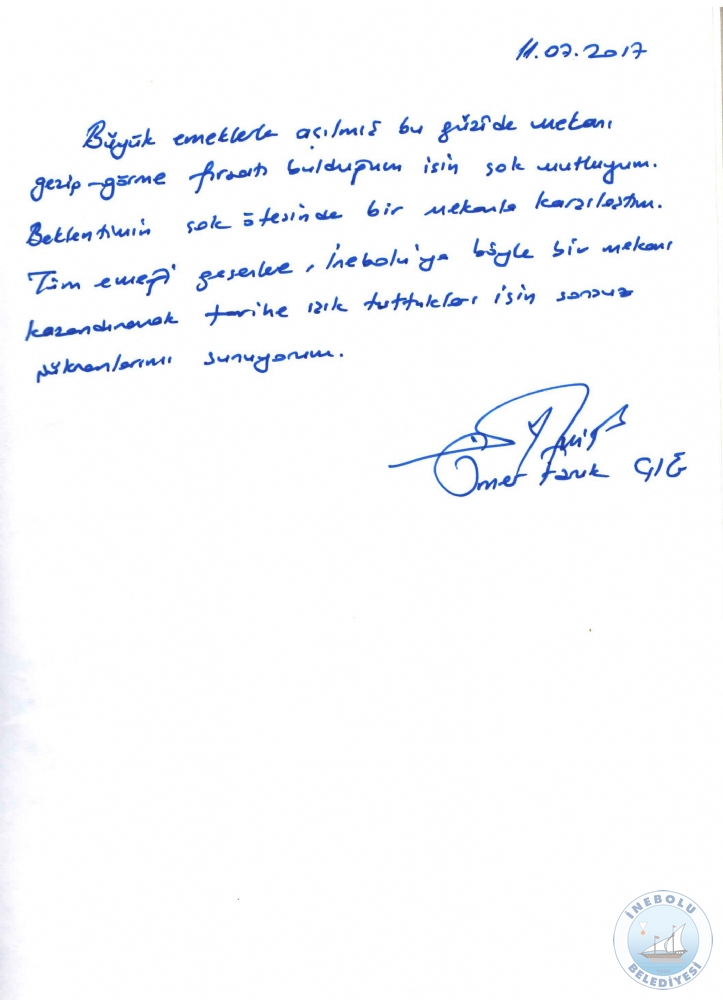 11.07.2017
Büyük emeklerle açılmış bu güzide mekanı
gezip-görme fırsatı bulduğum için çok mutluyum.
Beklentimin çok ötesinde bir mekanla karşılaştım.
Tüm emeği geçenlere, İnebolu'ya böyle bir mekanı
kazandırarak tarihe ışık tuttukları için sonsuz
şükranlarımı sunuyorum.
Ömer Faruk ÇIĞ
İNEBOLU
BELEDİYESİ